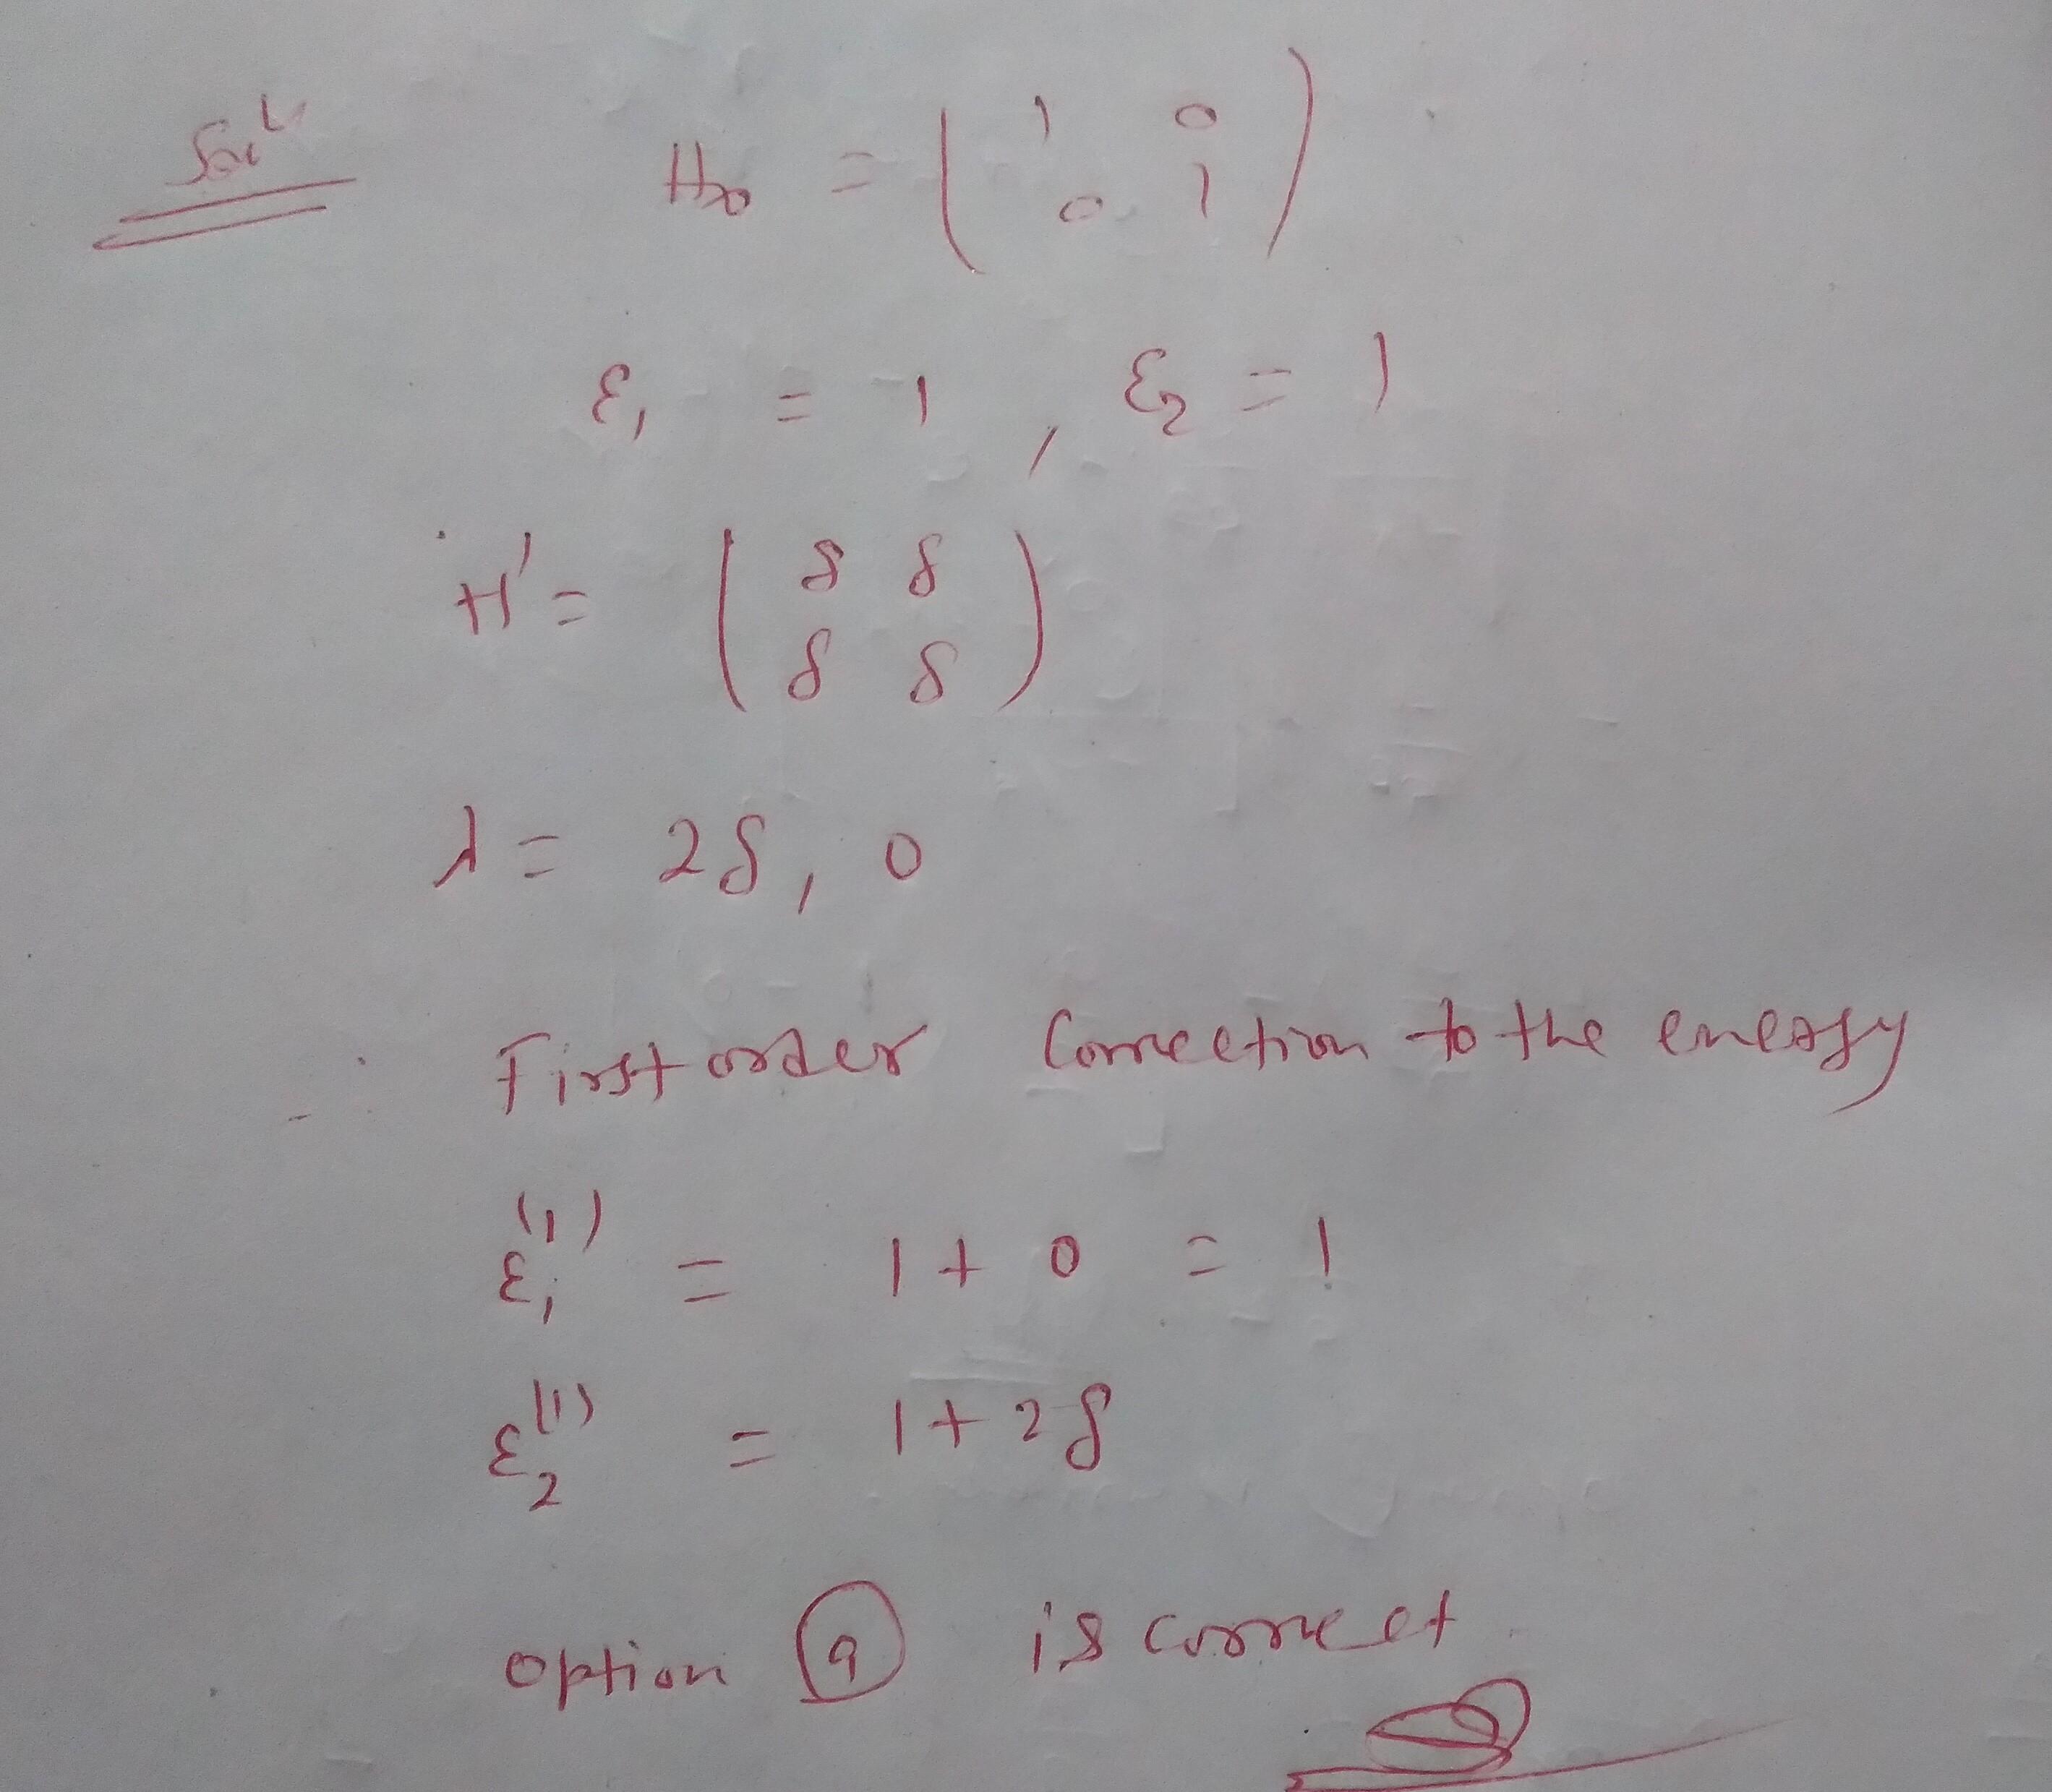 Sol
H₀ = ( 1 0
0 1 )
ε₁ = 1 , ε₂ = 1
H' = ( δ δ
δ δ )
λ = 2δ, 0
∴ First order Correction to the energy
ε₁⁽¹⁾ = 1 + 0 = 1
ε₂⁽¹⁾ = 1 + 2δ
option ⓐ is correct